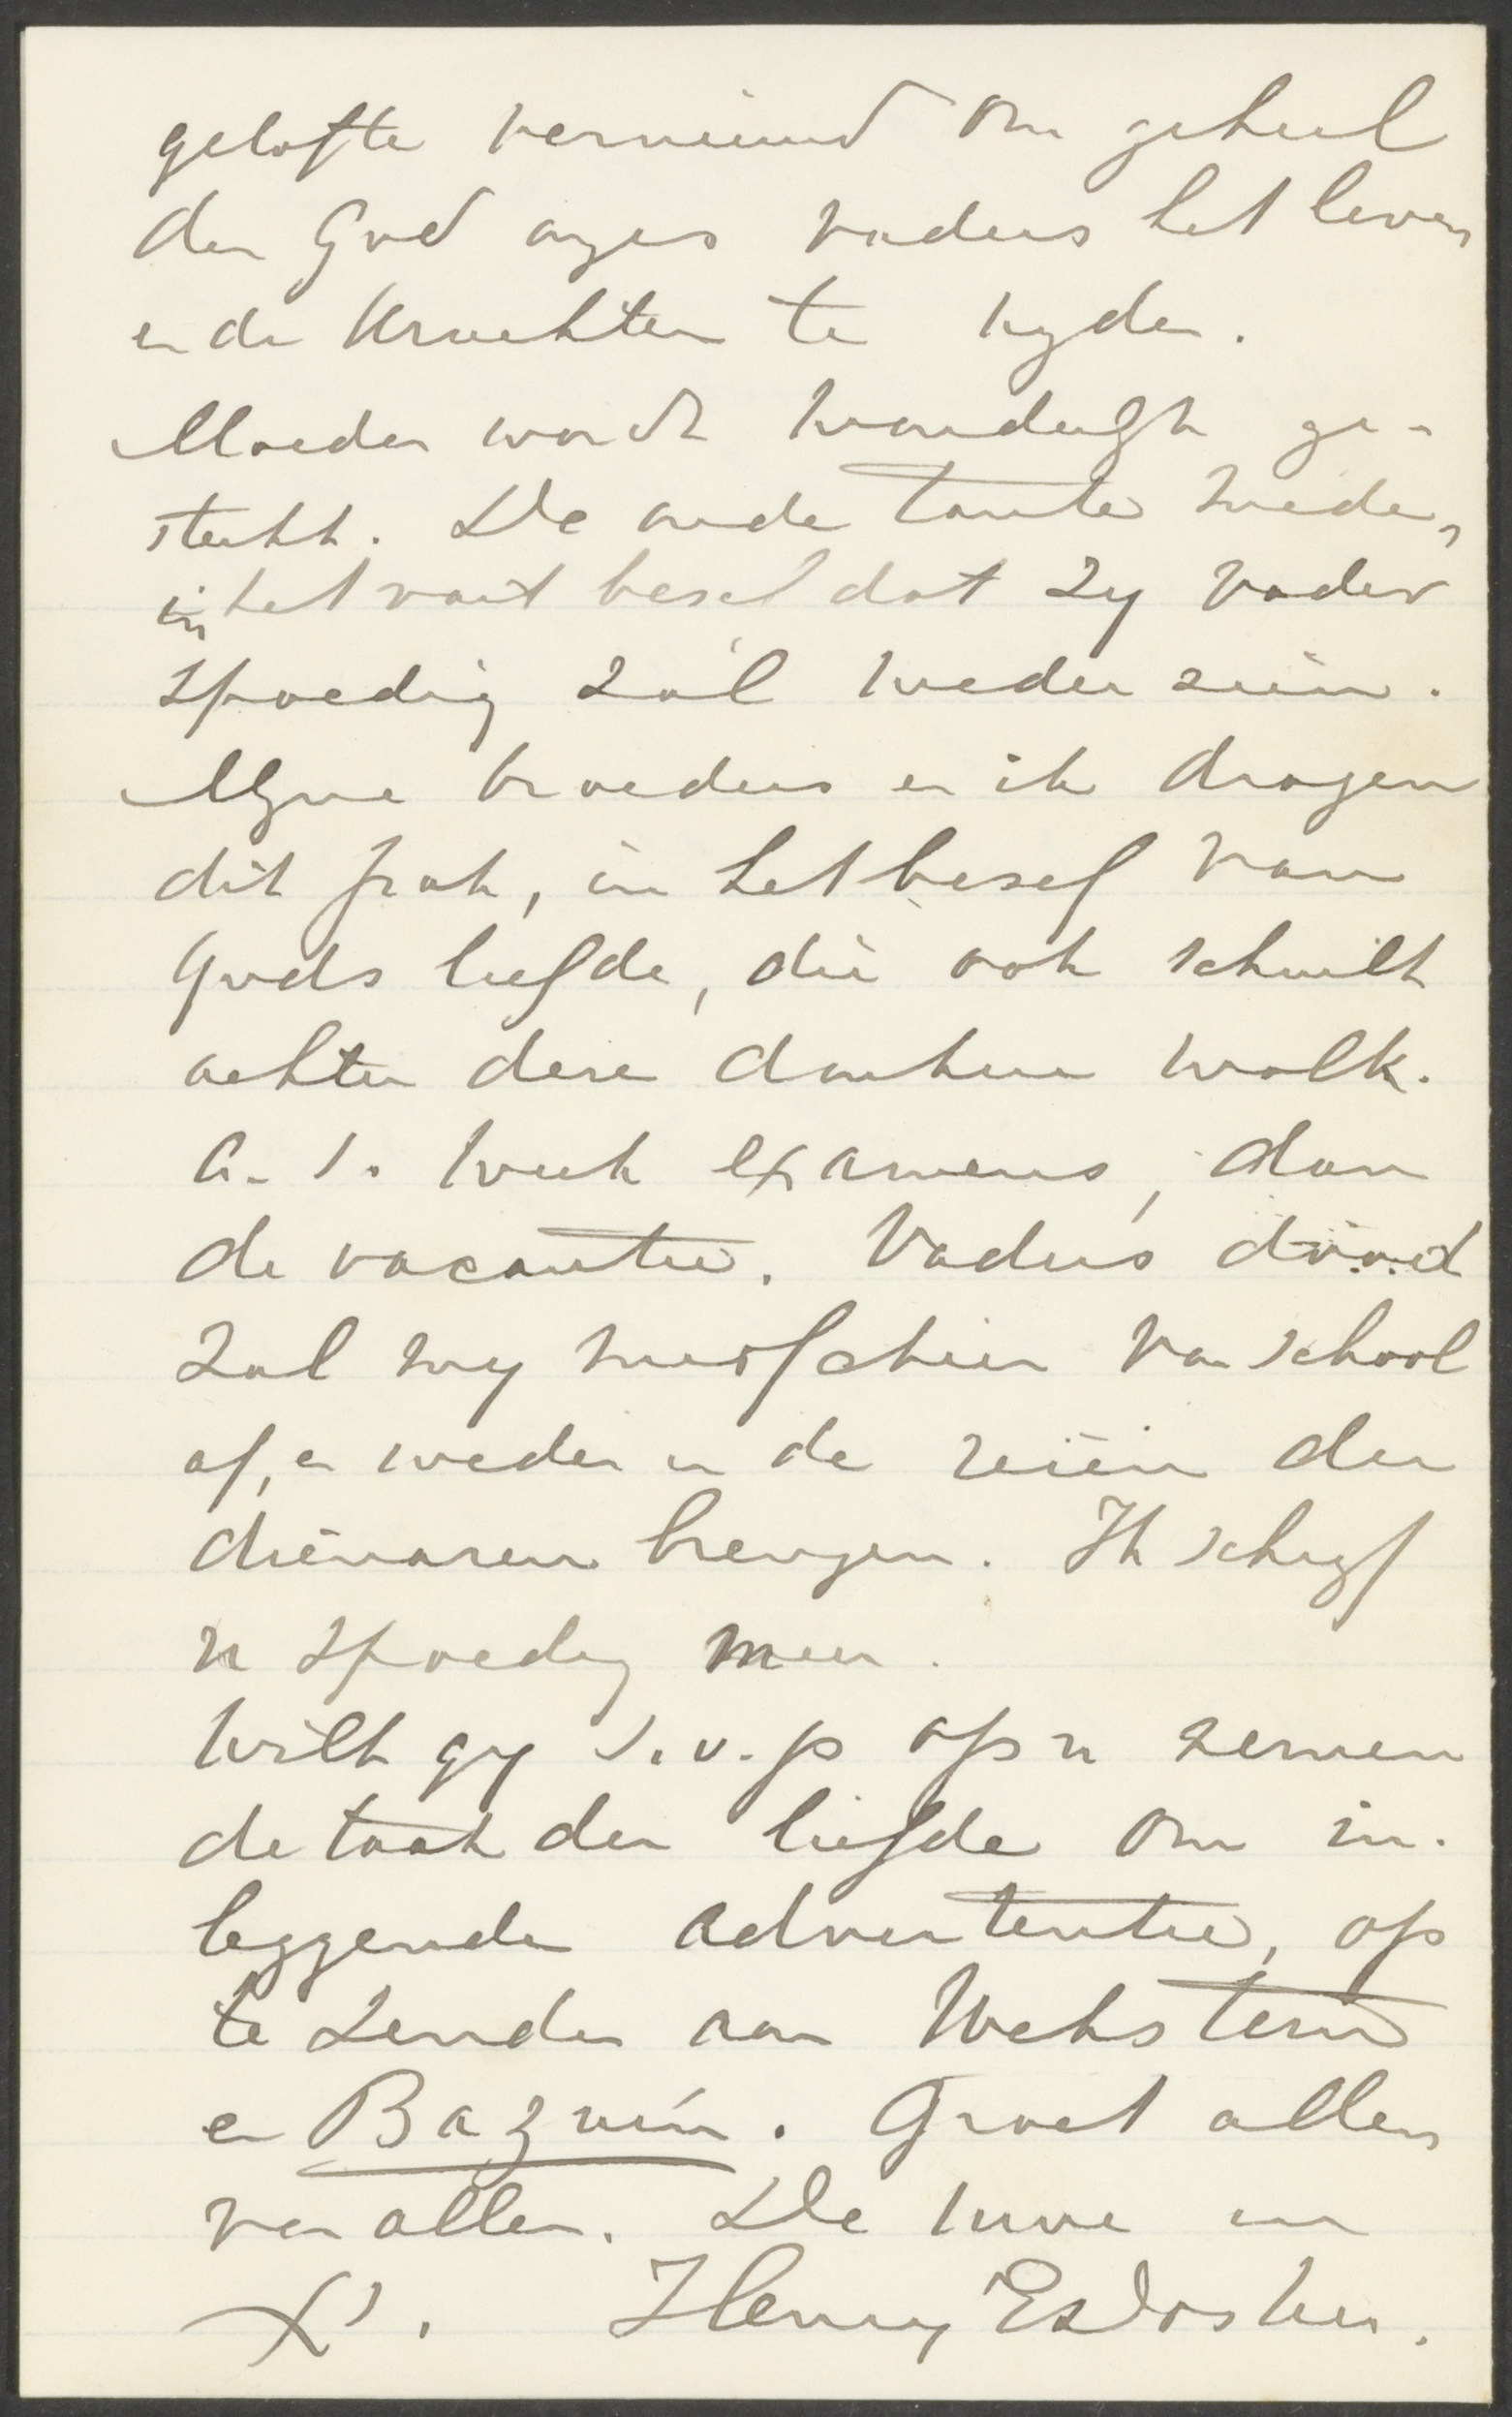 gelofte vernieuwd om geheel
den God onzes vaders het leven
en de krachten te wyden.
Moeder wordt wonderlyk ge-
sterkt. De oude tante mede,
in het vast besef dat zy vader
spoedig zal weder zien.
Myne broeders en ik dragen
dit juk, in het besef van
Gods liefde, die ook schuilt
achter deze donkere wolk.
a. s. week examens, dan
de vacantie. Vaders dood
zal my misschien van school
af, en weder in de reiën der
dienaren brengen. Ik schryf
u spoedig meer.
Wilt gy s.v.p op u nemen
de taak der liefde om in-
leggende advertentie, op
te zenden aan Wekstem
en Bazuin. Groet allen
van allen. De uwe in
Xs. Henry E. Dosker.